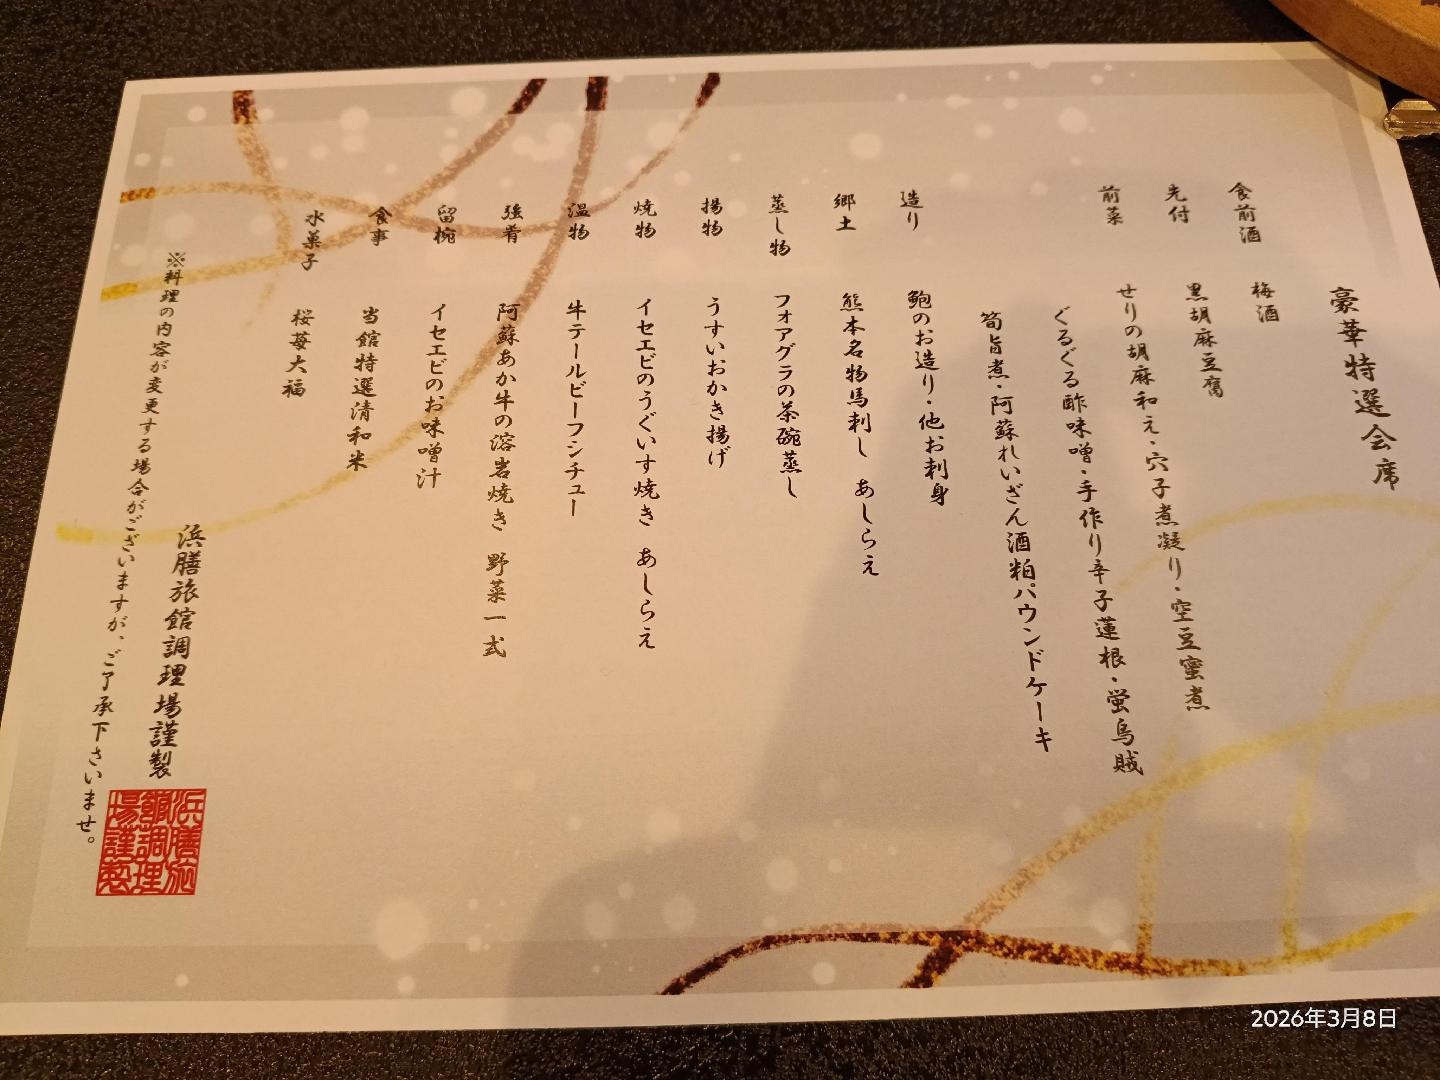 豪華特選会席
食前酒　梅酒
先付　黒胡麻豆腐
前菜　せりの胡麻和え・穴子煮凝り・空豆蜜煮
ぐるぐる酢味噌・手作り辛子蓮根・蛍烏賊
筍旨煮・阿蘇れいざん酒粕パウンドケーキ
造り　鮑のお造り・他お刺身
郷土　熊本名物馬刺し　あしらえ
蒸し物　フォアグラの茶碗蒸し
揚物　うすいおかき揚げ
焼物　イセエビのうぐいす焼き　あしらえ
温物　牛テールビーフシチュー
強肴　阿蘇あか牛の溶岩焼き　野菜一式
留椀　イセエビのお味噌汁
食事　当館特選清和米
水菓子　桜苺大福
浜膳旅館調理場謹製
※料理の内容が変更する場合がございますが、ご了承下さいませ。
浜膳旅館調理場謹製
2026年3月8日